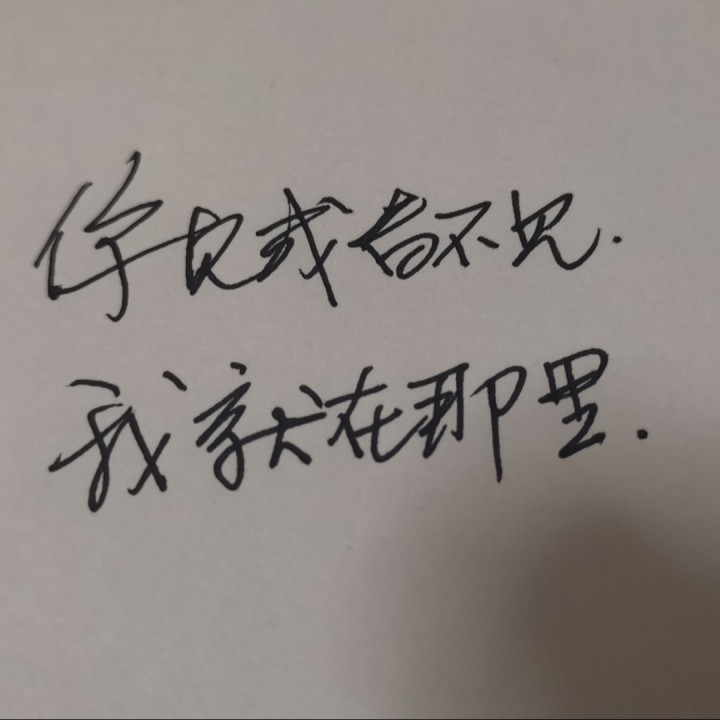 你见或者不见.
我就在那里.